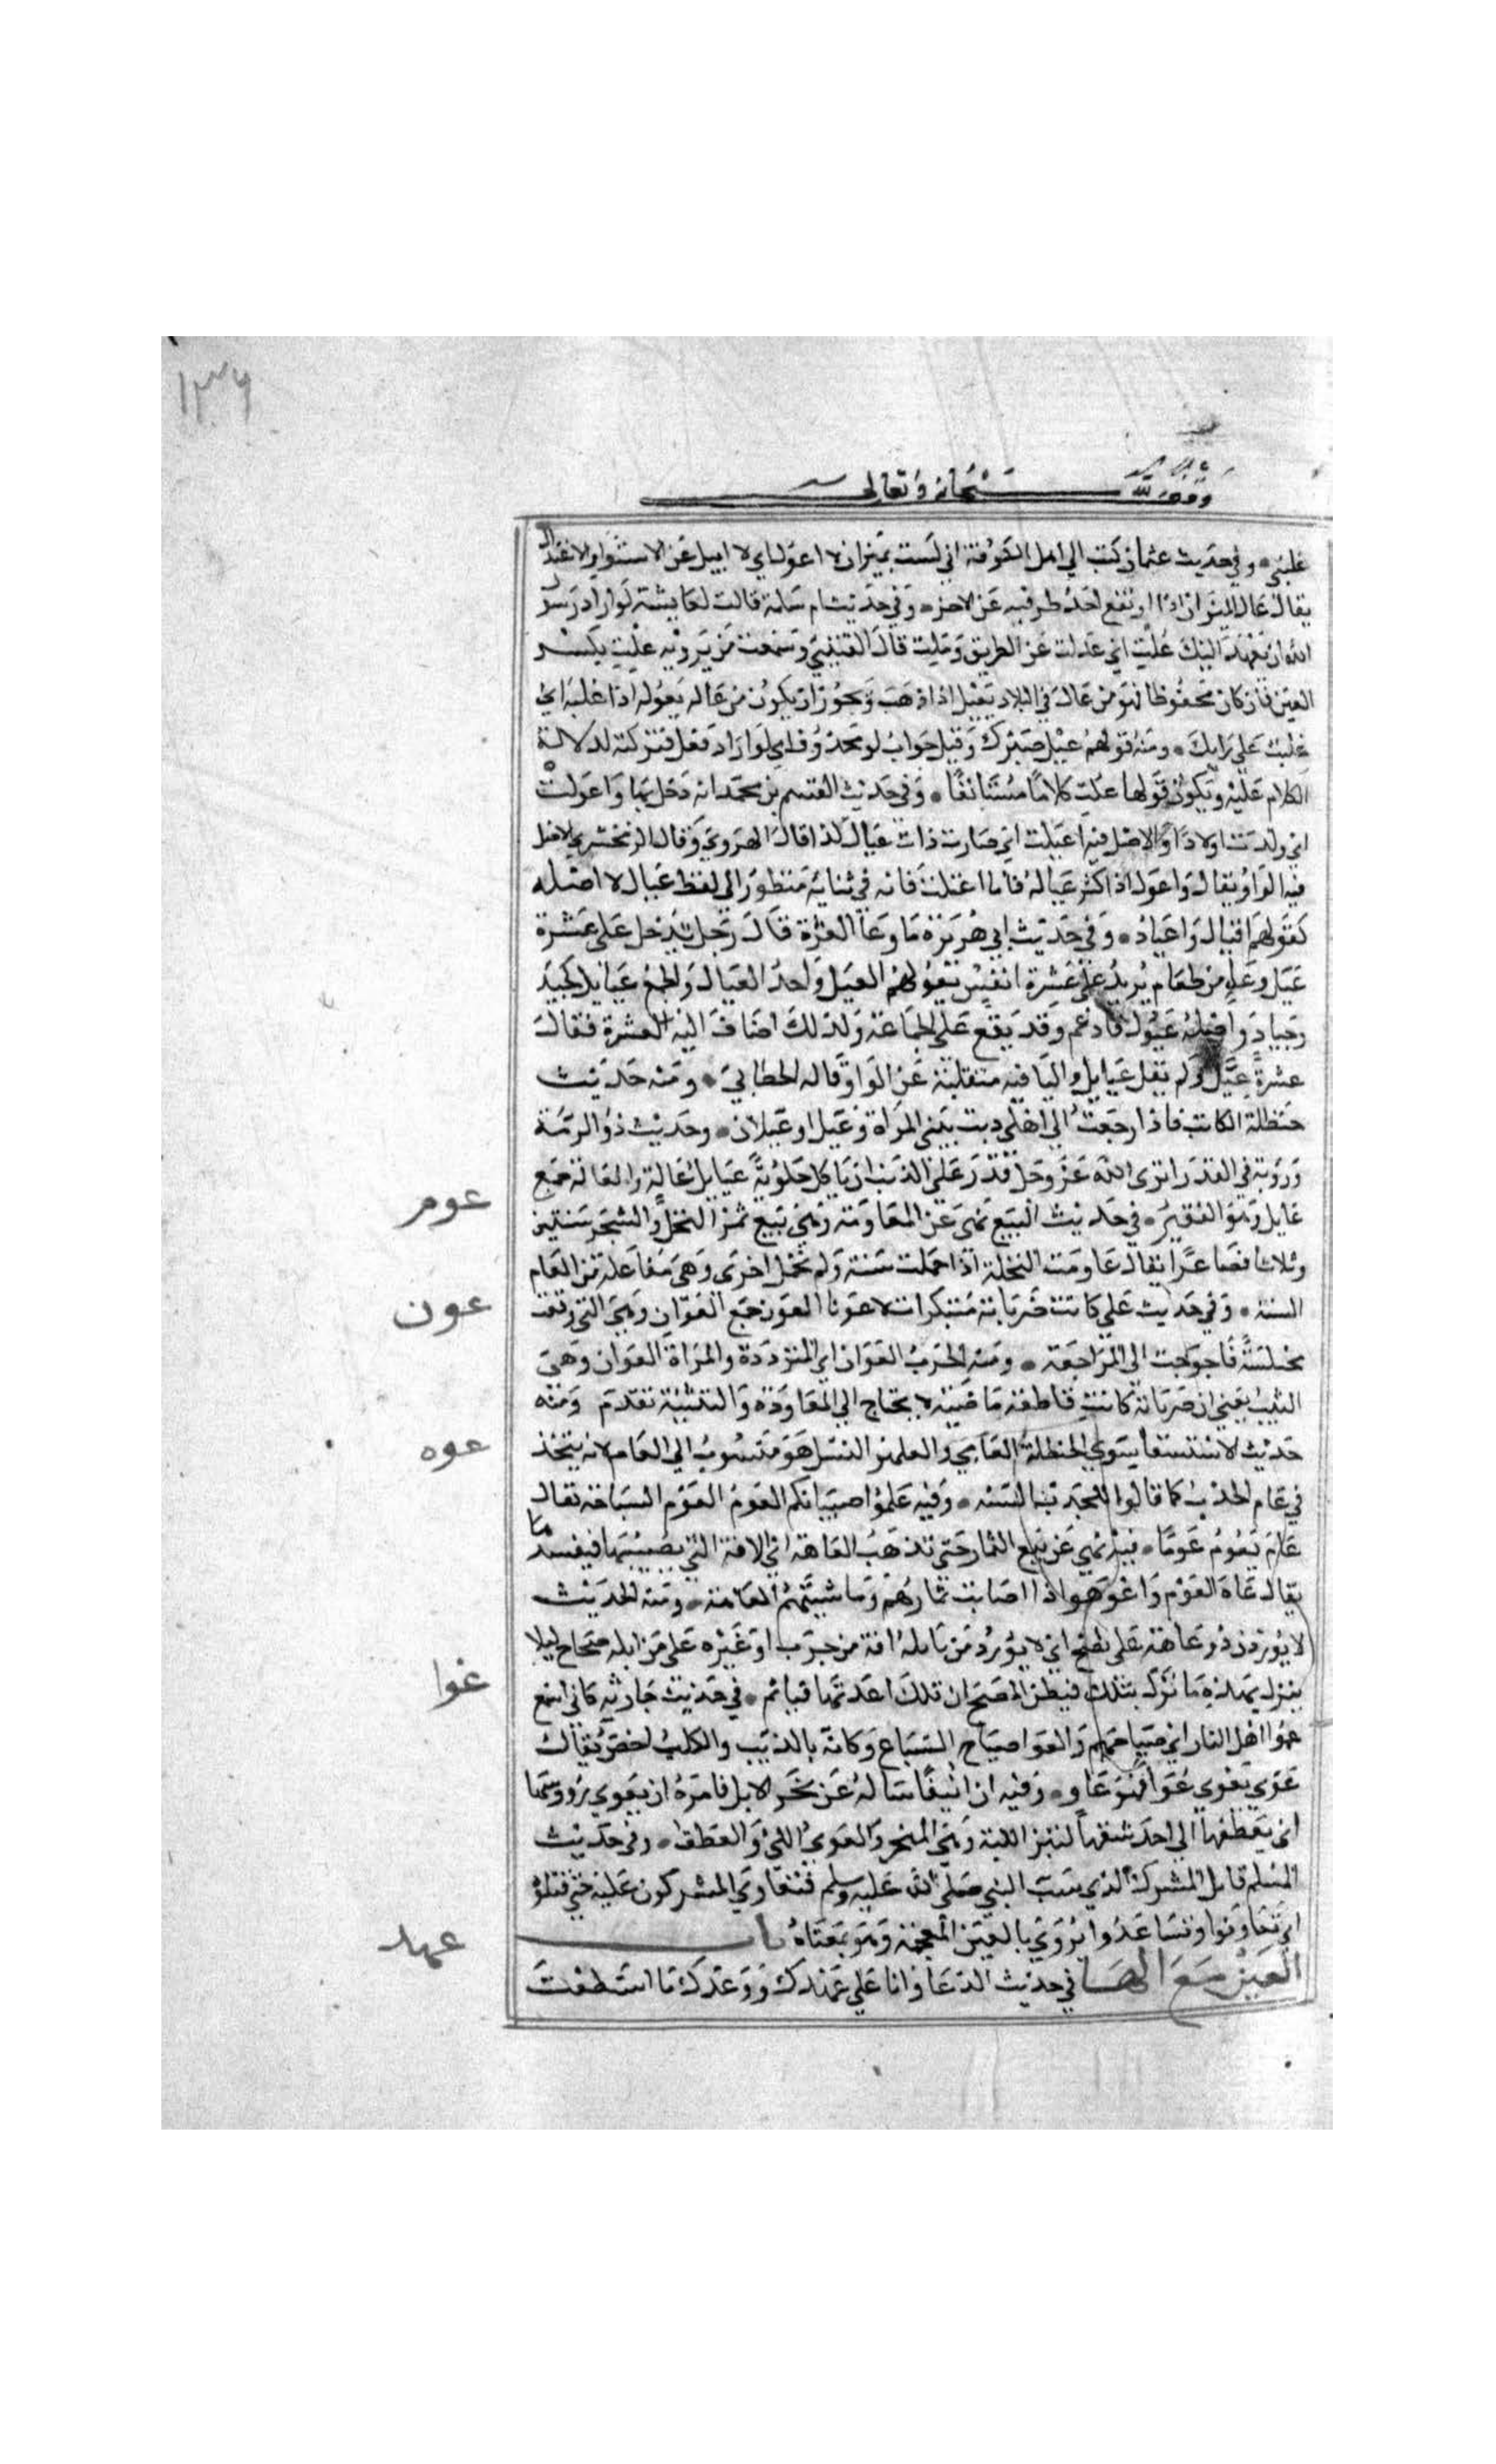 ١٣٦
وقف لله سبحانه وتعالى
غلبني • وفي حديث عثمان كتب الي اهل الكوفة اني لست بميزان لا اعول اي لا اميل عن الاستواء والاعتدال
يقال عال الميزان اذا ارتفع احد طرفيه عن الاخر • وفي حديث ام سلمة قالت لعايشة لو اراد رسول
الله ان يعهد اليك علت اي عدلت عن الطريق وملت قال القتيبي وسمعت من يرويه علت بكسر
العين فان كان محفوظا فهو من عال في البلاد يعيل اذا ذهب ويجوز ان يكون من عاله يعوله اذا غلبه اي
غلبت علي رايك • ومنه قولهم عيل صبرك وقيل جواب لو محذوف اي لو اراد فعل فتركته لدلالة
الكلام عليه ويكون قولها علت كلاما مستانفا • وفي حديث القسم بن محمد انه دخل بها واعولت
اي ولدت اولادا والاصل فيه اعيلت اي صارت ذات عيال كذا قال الهروي وقال الزمخشري الاصل
فيه الواو يقال واعول اذا كثر عياله فاما اعيلت فانه في بنائه منظور الي لفظ عيال لا اصله
كقولهم اقيال واعياد • وفي حديث ابي هريرة ما وعا العشرة قال رجل يدخل على عشرة
عيل وعا من طعام يريد على عشرة انفس يعولهم العيل واحد العيال والجمع عيايل كجيد
وجياد واصله عيول فادغم وقد يقع على الجماعة ولذلك اضاف اليه العشرة فقال
عشرة عيل ولم يقل عيايل واليا فيه منقلبة عن الواو قاله الخطابي • ومنه حديث
حنظلة الكاتب فاذا رجعت الي اهلي دنت مني المراة وعيل او عيلان • وحديث ذو الرمة
وروبة في القدر اترى الله عز وجل قدر على الذيب ان ياكل حلوبة عيايل عالة والعالة جمع
عايل وهو الفقير • في حديث البيع نهى عن المعاومة وهي بيع ثمر النخل والشجر سنتين
وثلاثا فصاعدا يقال عاومت النخلة اذا حملت سنة ولم تحمل اخرى وهي مفاعلة من العام
السنة • وفي حديث علي كانت ضرباته مبتكرات لا عونا العون جمع العوان وهي التي وقعت
مختلسة فاحوجت الي المراجعة • ومنه الحرب العوان اي المترددة والمراة العوان وهي
الثيب يعني ان ضرباته كانت قاطعة ماضية لا يحتاج الي المعاودة والتثنية تقدم ومنه
حديث الاستسقا سوى الحنظل العامي والعلهز الفسل هو منسوب الي العام لانه يتخذ
في عام الجدب كما قالوا للجدب السنة • وفيه علموا صبيانكم العوم العوم السباحة يقال
عام يعوم عوما • فيه نهي عن بيع الثمار حتى تذهب العاهة اي الافة التي تصيبها فيفسدها
يقال عاه القوم واعوهوا اذا اصابت ثمارهم وماشيتهم العاهة • ومنه الحديث
لا يوردن ذو عاهة على مصح اي لا يورد من بابله افة من جرب او غيره على من ابله صحاح ليلا
ينزل بهذه ما نزل بتلك فيظن المصح ان تلك اعدتها فياثم • في حديث حارثة كاني اسمع
عوا اهل النار اي صياحهم والعوا صياح السباع وكانه بالذيب والكلب اخص يقال
عوى يعوي عوا فهو عاو • وفيه ان انيفا ساله عن نحر الابل فامره ان يعوي رووسها
اي يعطفها الي احد شقيها لتبرز اللبة وهي المنحر والعوي اللي والعطف • وفي حديث
المسلم قاتل المشرك الذي يسب النبي صلى الله عليه وسلم فتعاوى المشركون عليه حتى قتلوه
اي تعاونوا وتساعدوا يروى بالغين المعجمة وهو بمعناه باب
العين مع الها في حديث الدعا وانا على عهدك ووعدك ما استطعت
عوم
عون
عوه
عوا
عهد